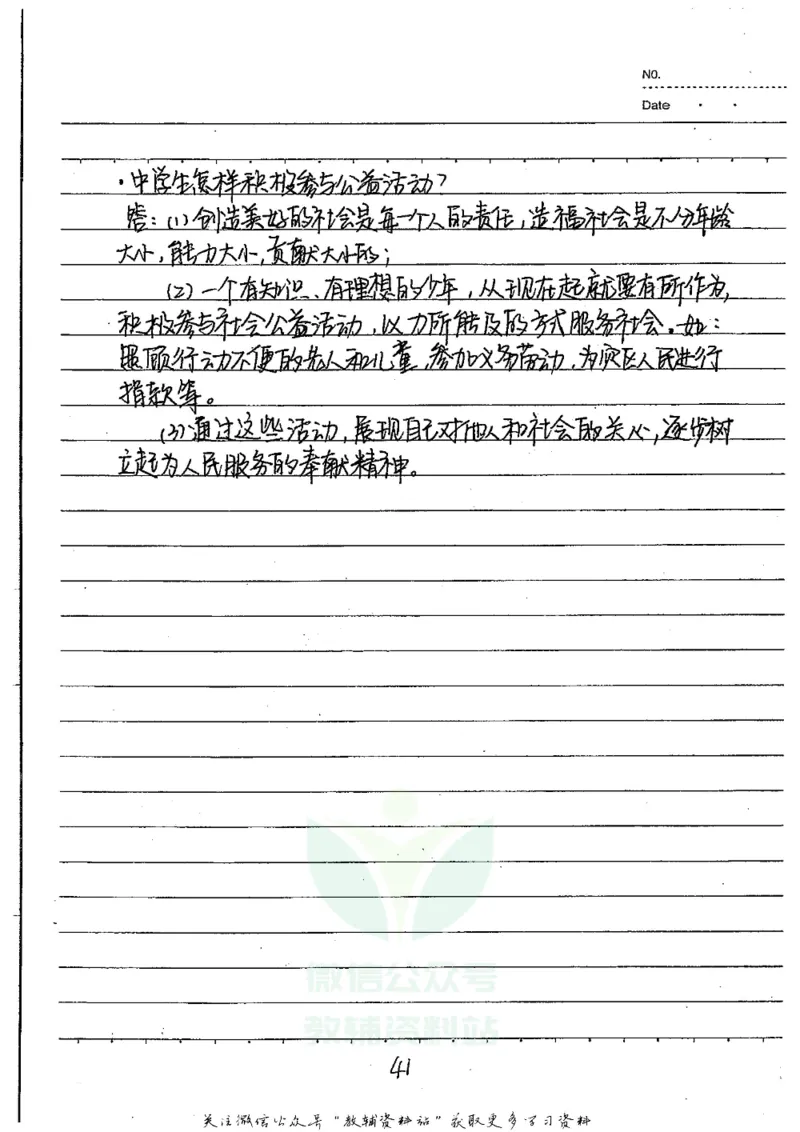 NO.
Date
·中学生怎样积极参与公益活动?
答:(1)创造美好的社会是每一个人的责任,造福社会是不分年龄
大小,能力大小,贡献大小的;
(2)一个有知识、有理想的少年,从现在起就要有所作为,
积极参与社会公益活动,以力所能及的方式服务社会。如:
照顾行动不便的老人和儿童,参加义务劳动,为灾区人民进行
捐款等。
(3)通过这些活动,展现自己对他人和社会的关心,逐步树
立起为人民服务的奉献精神。
微信公众号
教辅资料站
41
关注微信公众号"教辅资料站"获取更多学习资料